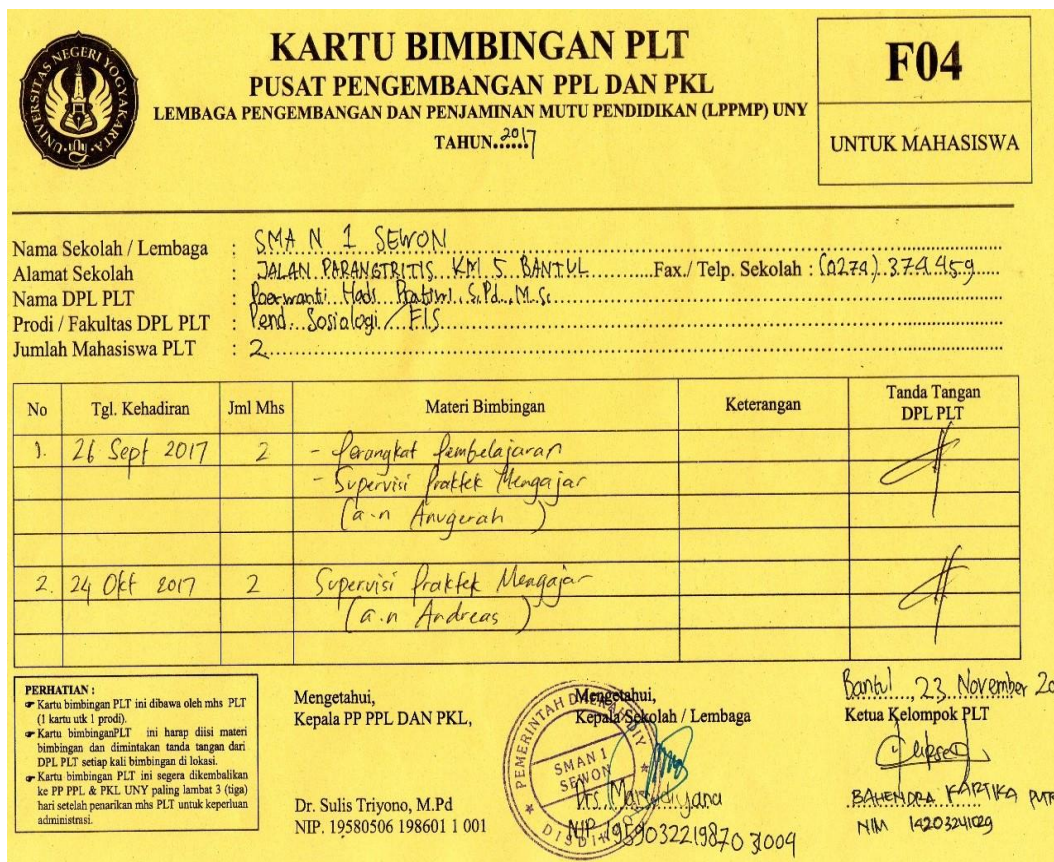 UNIVERSITAS NEGERI YOGYAKARTA
UNY
KARTU BIMBINGAN PLT
PUSAT PENGEMBANGAN PPL DAN PKL
LEMBAGA PENGEMBANGAN DAN PENJAMINAN MUTU PENDIDIKAN (LPPMP) UNY
TAHUN 2017
F04
UNTUK MAHASISWA
Nama Sekolah / Lembaga : SMA N 1 SEWON
Alamat Sekolah : JALAN PARANGTRITIS KM 5 BANTUL Fax./ Telp. Sekolah : (0274) 374459
Nama DPL PLT : Poerwanti Hadi Pratiwi, S.Pd., M.Si
Prodi / Fakultas DPL PLT : Pend. Sosiologi / FIS
Jumlah Mahasiswa PLT : 2
No Tgl. Kehadiran Jml Mhs Materi Bimbingan Keterangan Tanda Tangan DPL PLT
1. 26 Sept 2017 2 - Perangkat Pembelajaran
- Supervisi Praktek Mengajar
(a.n Anugerah )
2. 24 Okt 2017 2 Supervisi Praktek Mengajar
(a.n Andreas )
PERHATIAN :
☞ Kartu bimbingan PLT ini dibawa oleh mhs PLT
(1 kartu utk 1 prodi).
☞ Kartu bimbinganPLT ini harap diisi materi
bimbingan dan dimintakan tanda tangan dari
DPL PLT setiap kali bimbingan di lokasi.
☞ Kartu bimbingan PLT ini segera dikembalikan
ke PP PPL & PKL UNY paling lambat 3 (tiga)
hari setelah penarikan mhs PLT untuk keperluan
administrasi.
Mengetahui,
Kepala PP PPL DAN PKL,
Dr. Sulis Triyono, M.Pd
NIP. 19580506 198601 1 001
Mengetahui,
Kepala Sekolah / Lembaga
PEMERINTAH DAERAH DIY
SMAN 1
SEWON
Drs. Marsudiyana
NIP. 195903221987031009
Bantul, 23 November 20
Ketua Kelompok PLT
BAHENDRA KARTIKA PUTR
NIM 14203241029